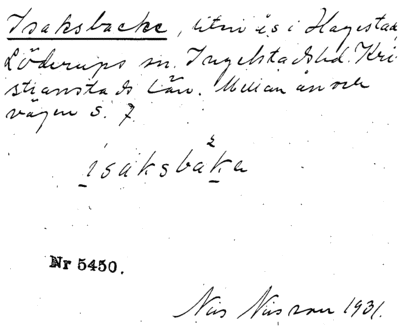 Isaksbacke, utm. i s. i Hagestad,
Löderups sn. Ingelstads hd. Kri-
stianstads Län. Mellan ån och
vägen S. 7.
isaksbaka
Nr 5450.
Nils Nilsson 1931.